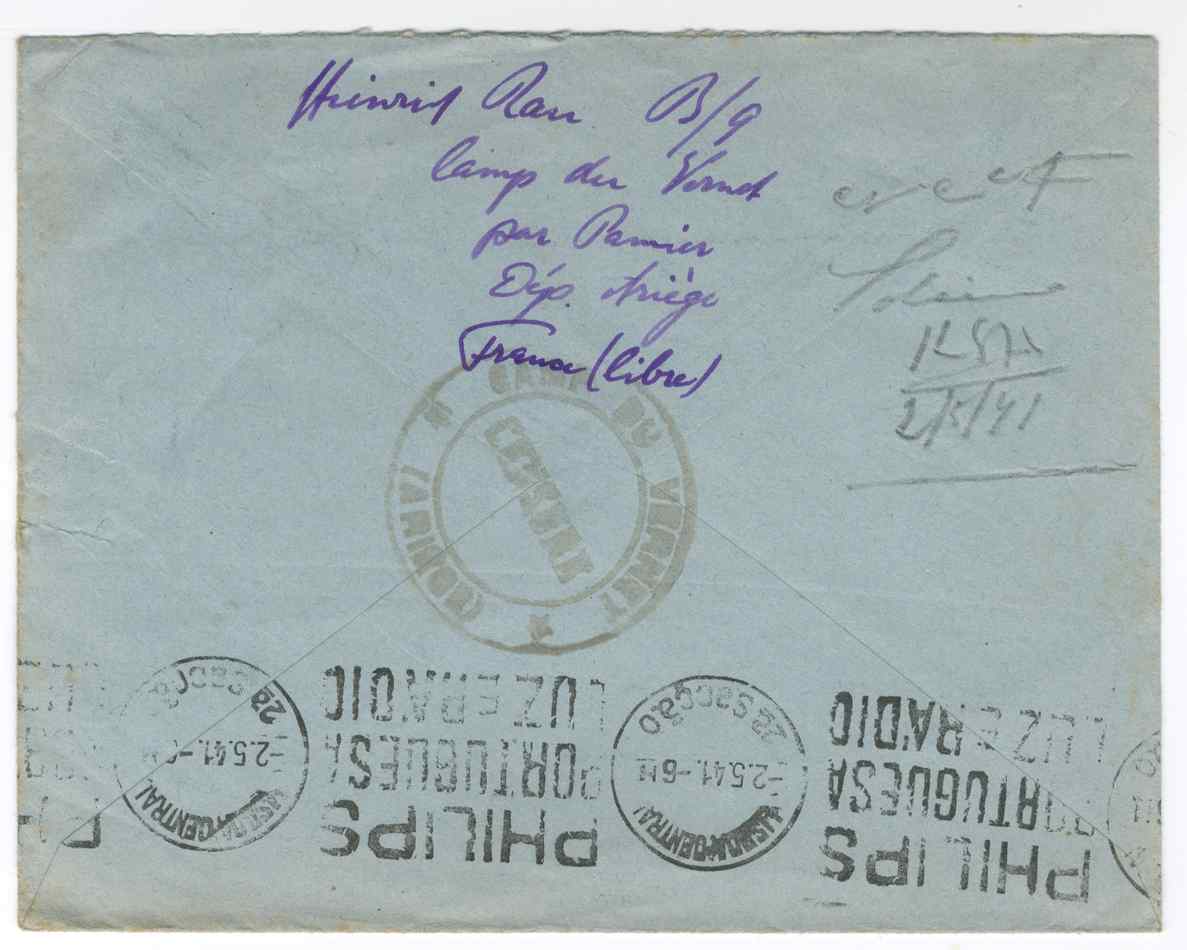 Heinrich Rau B/9
Camp du Vernet
par Pamier
Dép. Ariège
France (libre)
1257
2/5/41
CAMP DU VERNET
CENSURE
(ARIÈGE)
2ª Secção
-2.5.41.-6M
LISBOA CENTRAL
PHILIPS
PORTUGUESA
LUZ E RADIO
2ª Secção
-2.5.41.-6M
LISBOA CENTRAL
PHILIPS
PORTUGUESA
LUZ E RADIO